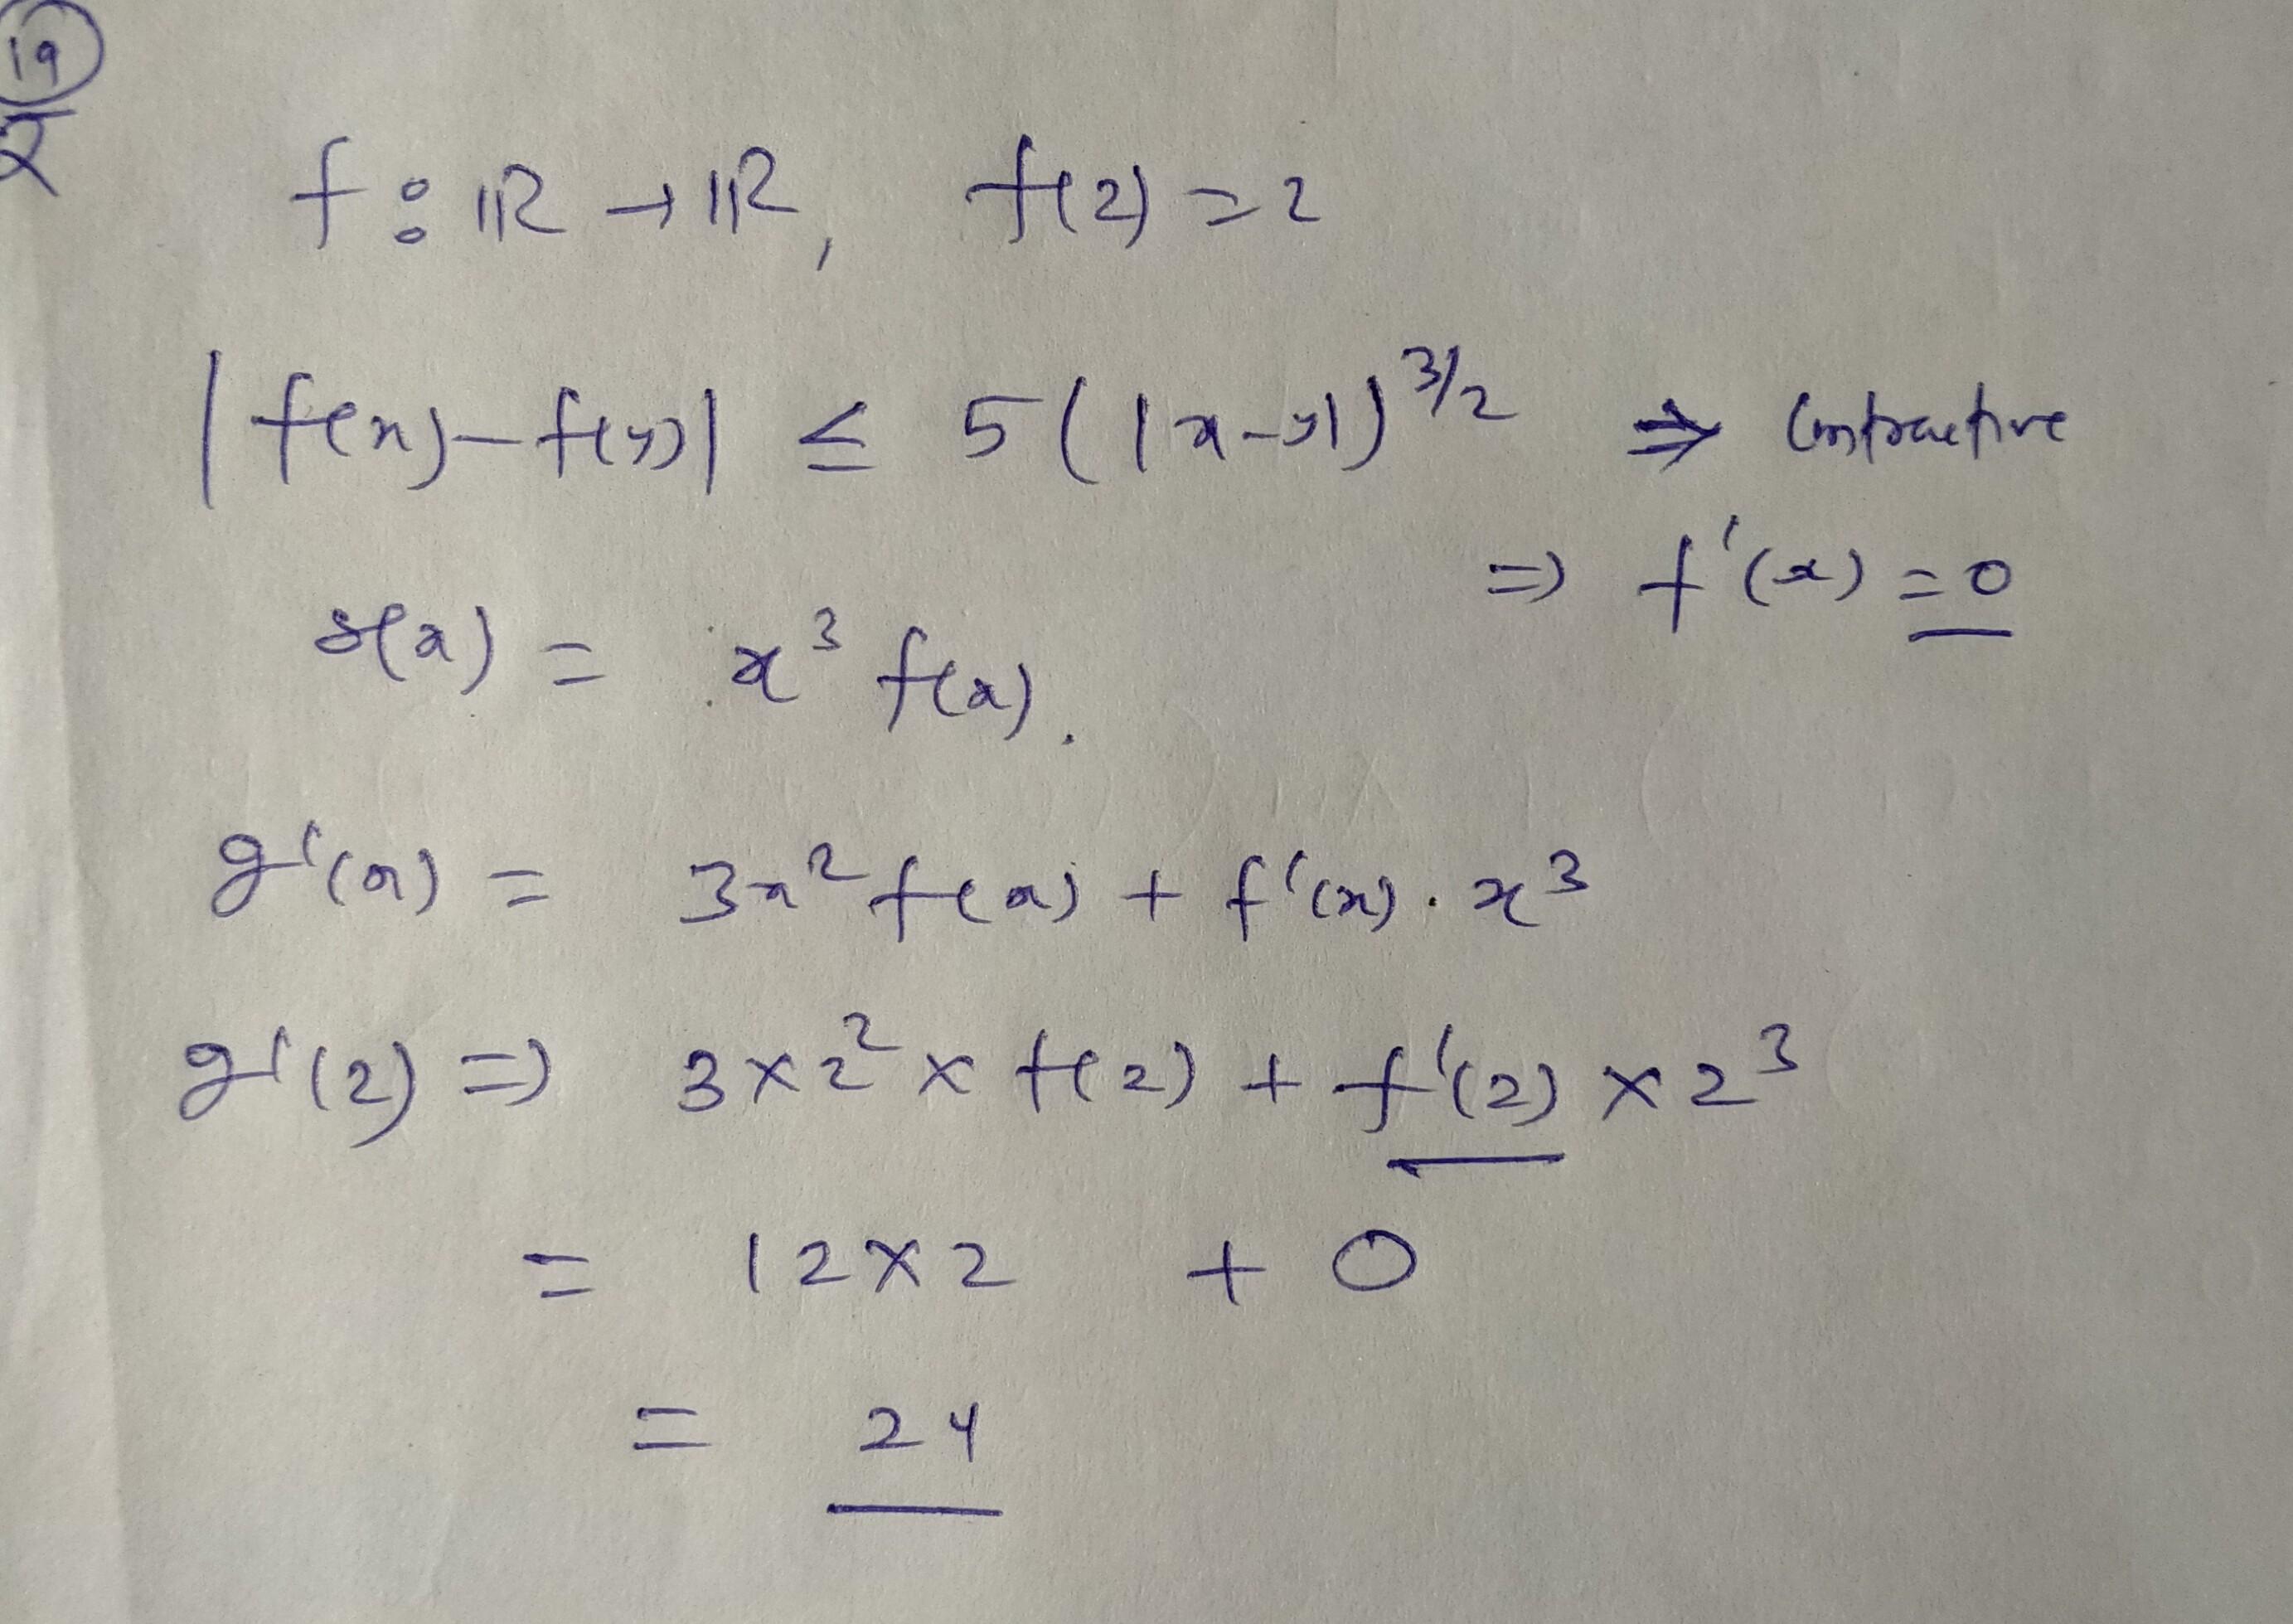 19
f : ℝ → ℝ, f(2) = 2
|f(x) - f(y)| ≤ 5(|x-y|)^{3/2} ⇒ Contractive
⇒ f'(x) = 0
g(x) = x³ f(x).
g'(x) = 3x² f(x) + f'(x) · x³
g'(2) ⇒ 3×2² × f(2) + f'(2) × 2³
= 12×2 + 0
= 24